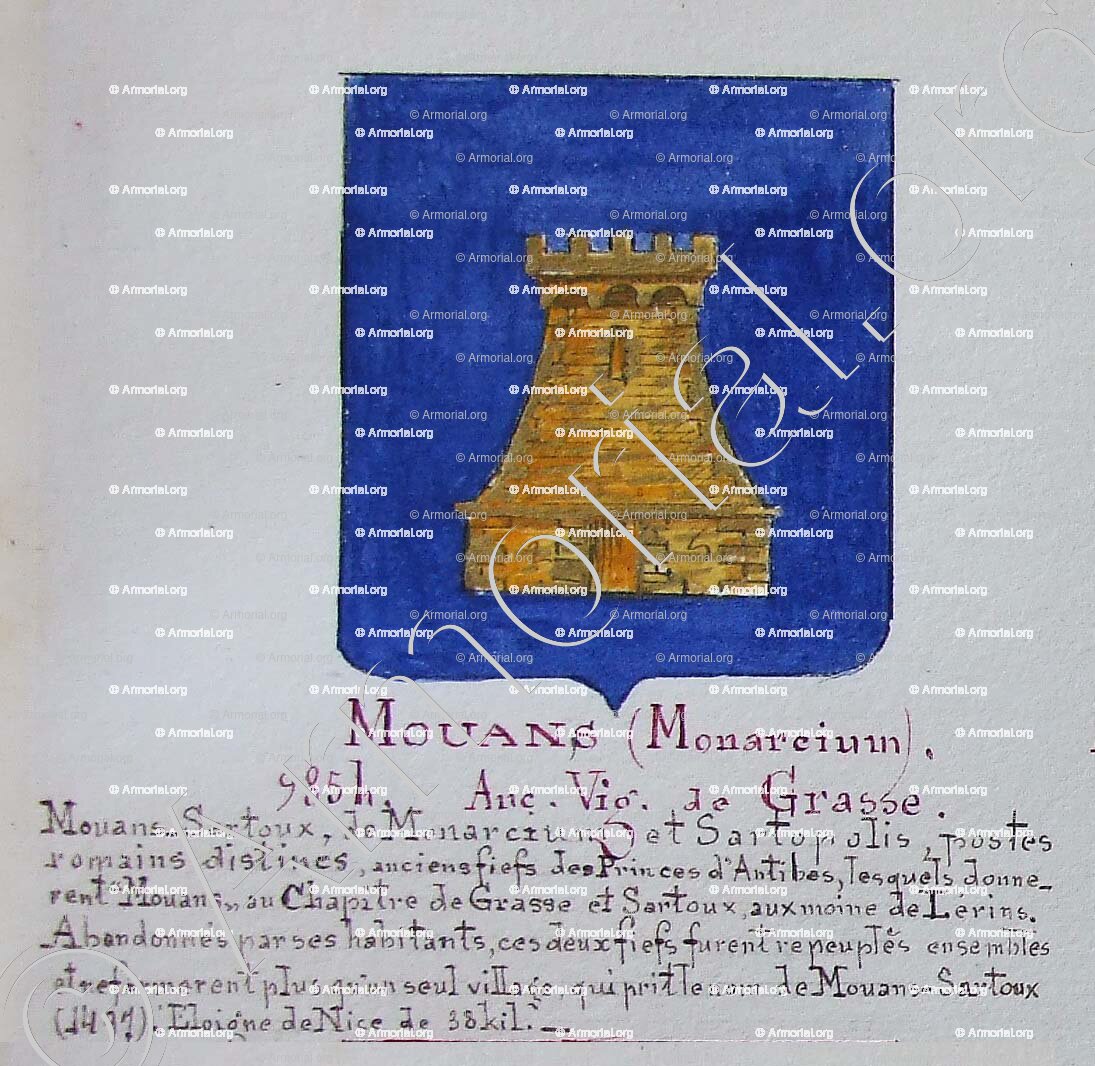 MOUANS (Monarcium).
985 h. Anc. Vig. de Grasse.
Mouans-Sartoux, de Monarcium et Sartopolis, postes
romains distincs, anciens fiefs des Princes d'Antibes, lesquels donne-
rent Mouans, au Chapitre de Grasse et Sartoux, aux moine de Lérins.
Abandonnés par ses habitants, ces deux fiefs furent repeuplés ensembles
et ne formerent plus seul village qui prit le nom de Mouans-Sartoux
Eloigne de Nice de 38 kil.
© Armorial.org